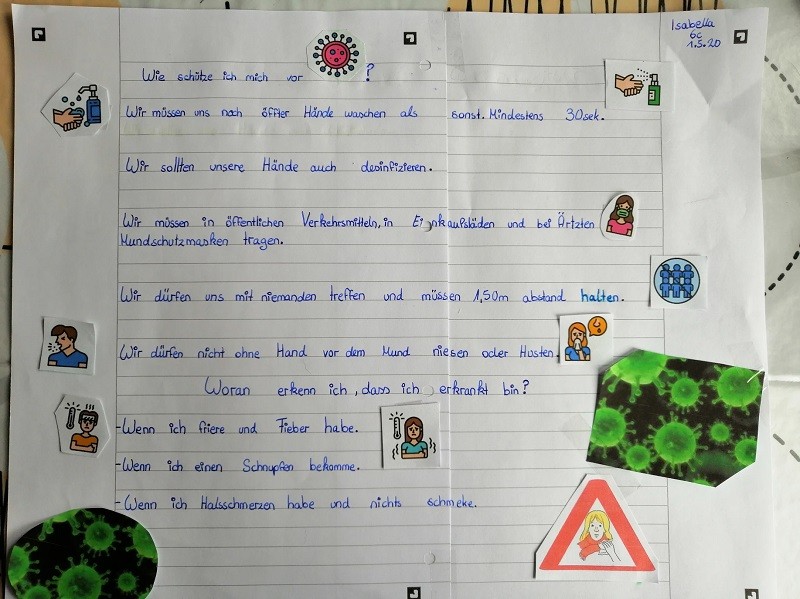 Isabella
6c
1.5.20
Wie schütze ich mich vor ?
Wir müssen uns noch öffter Hände waschen als sonst. Mindestens 30sek.
Wir sollten unsere Hände auch desinfizieren.
Wir müssen in öffentlichen Verkehrsmitteln, in Einkaufsläden und bei Ärtzten
Mundschutzmasken tragen.
Wir dürfen uns mit niemanden treffen und müssen 1,50m abstand halten.
Wir dürfen nicht ohne Hand vor dem Mund niesen oder Husten.
Woran erkenn ich, dass ich erkrankt bin?
-Wenn ich friere und Fieber habe.
-Wenn ich einen Schnupfen bekomme.
-Wenn ich Halsschmerzen habe und nichts schmeke.